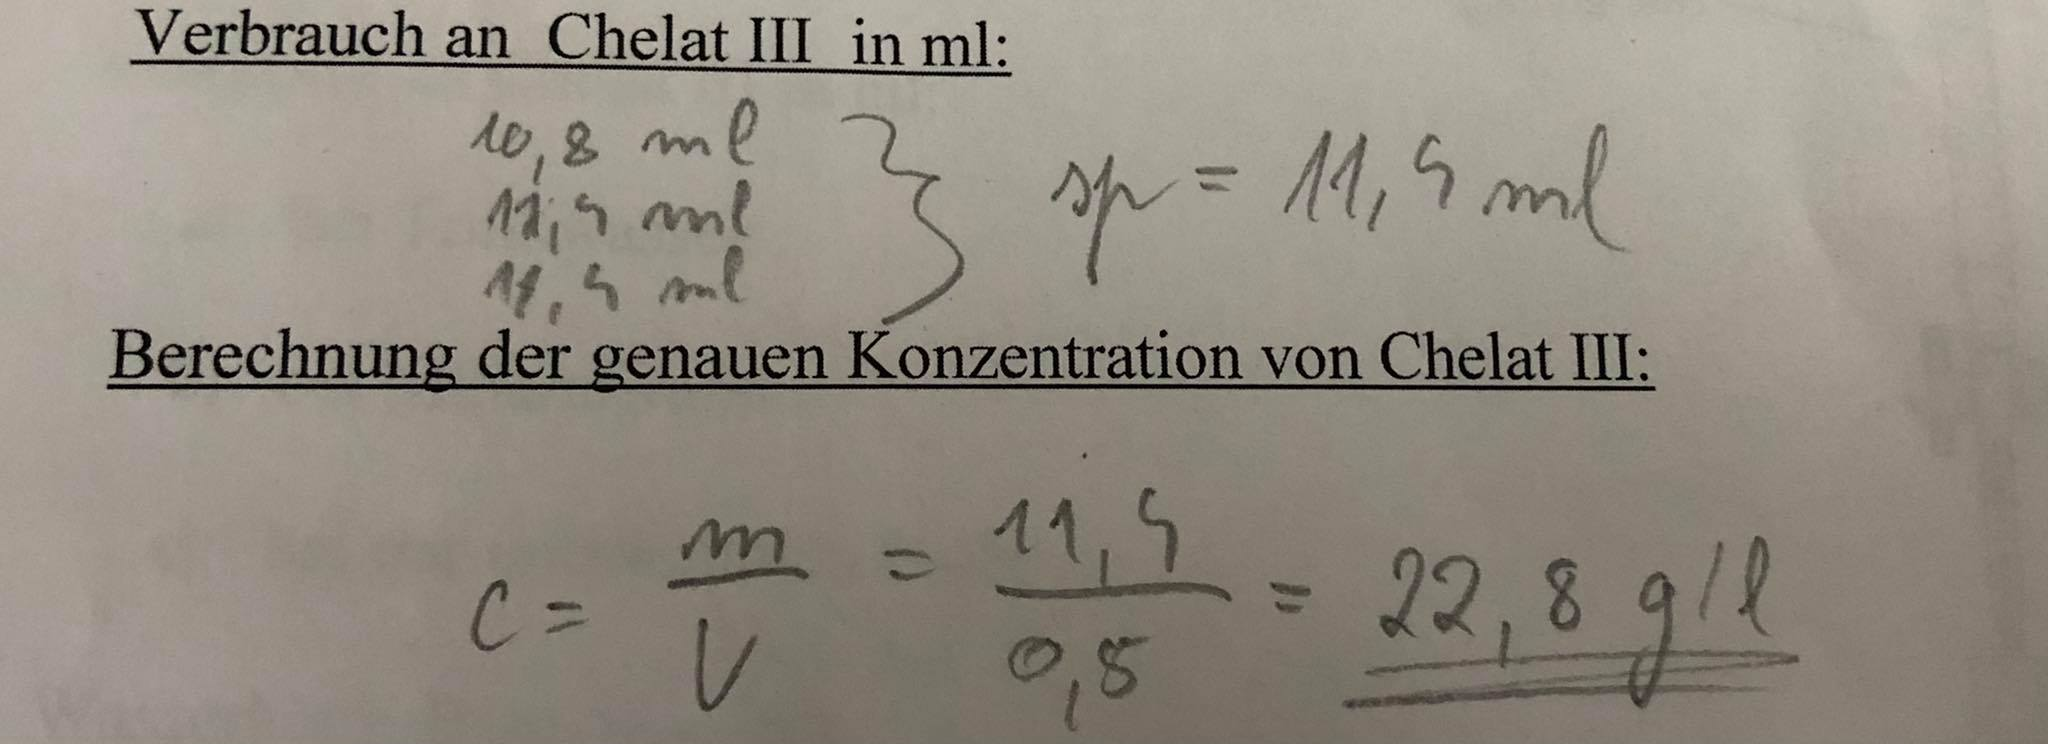 Verbrauch an Chelat III in ml:
10,8 ml
11,4 ml
11,4 ml
sp = 11,4 ml
Berechnung der genauen Konzentration von Chelat III:
c = m/V = 11,4/0,5 = 22,8 g/l